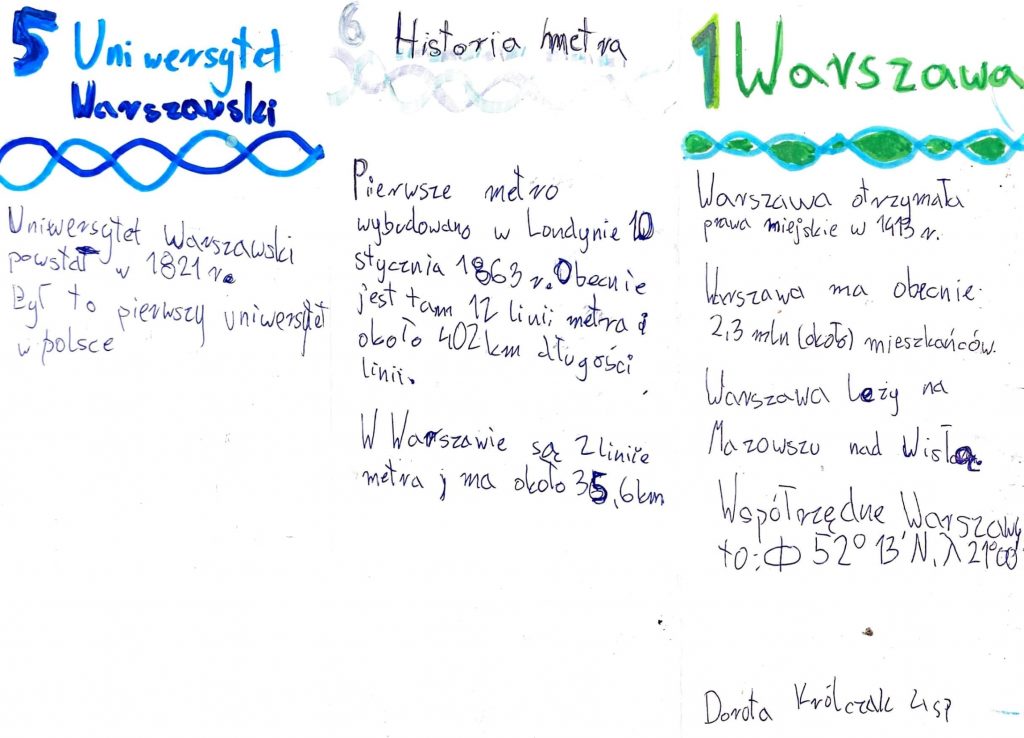 5 Uniwersytet
Warszawski
Uniwersytet Warszawski
powstał w 1821 r.
Był to pierwszy uniwersytet
w polsce
6 Historia metra
Pierwsze metro
wybudowano w Londynie 10
stycznia 1863 r. Obecnie
jest tam 12 linii metra i
około 402 km długości
linii.
W Warszawie są 2 linie
metra j ma około 35,6 km
1 Warszawa
Warszawa otrzymała
prawa miejskie w 1413 r.
Warszawa ma obecnie:
2,3 mln (około) mieszkańców.
Warszawa Leży na
Mazowszu nad Wisłą.
Współrzędne Warszawy
to: Φ 52° 13' N, λ 21°00'
Dorota Królczak